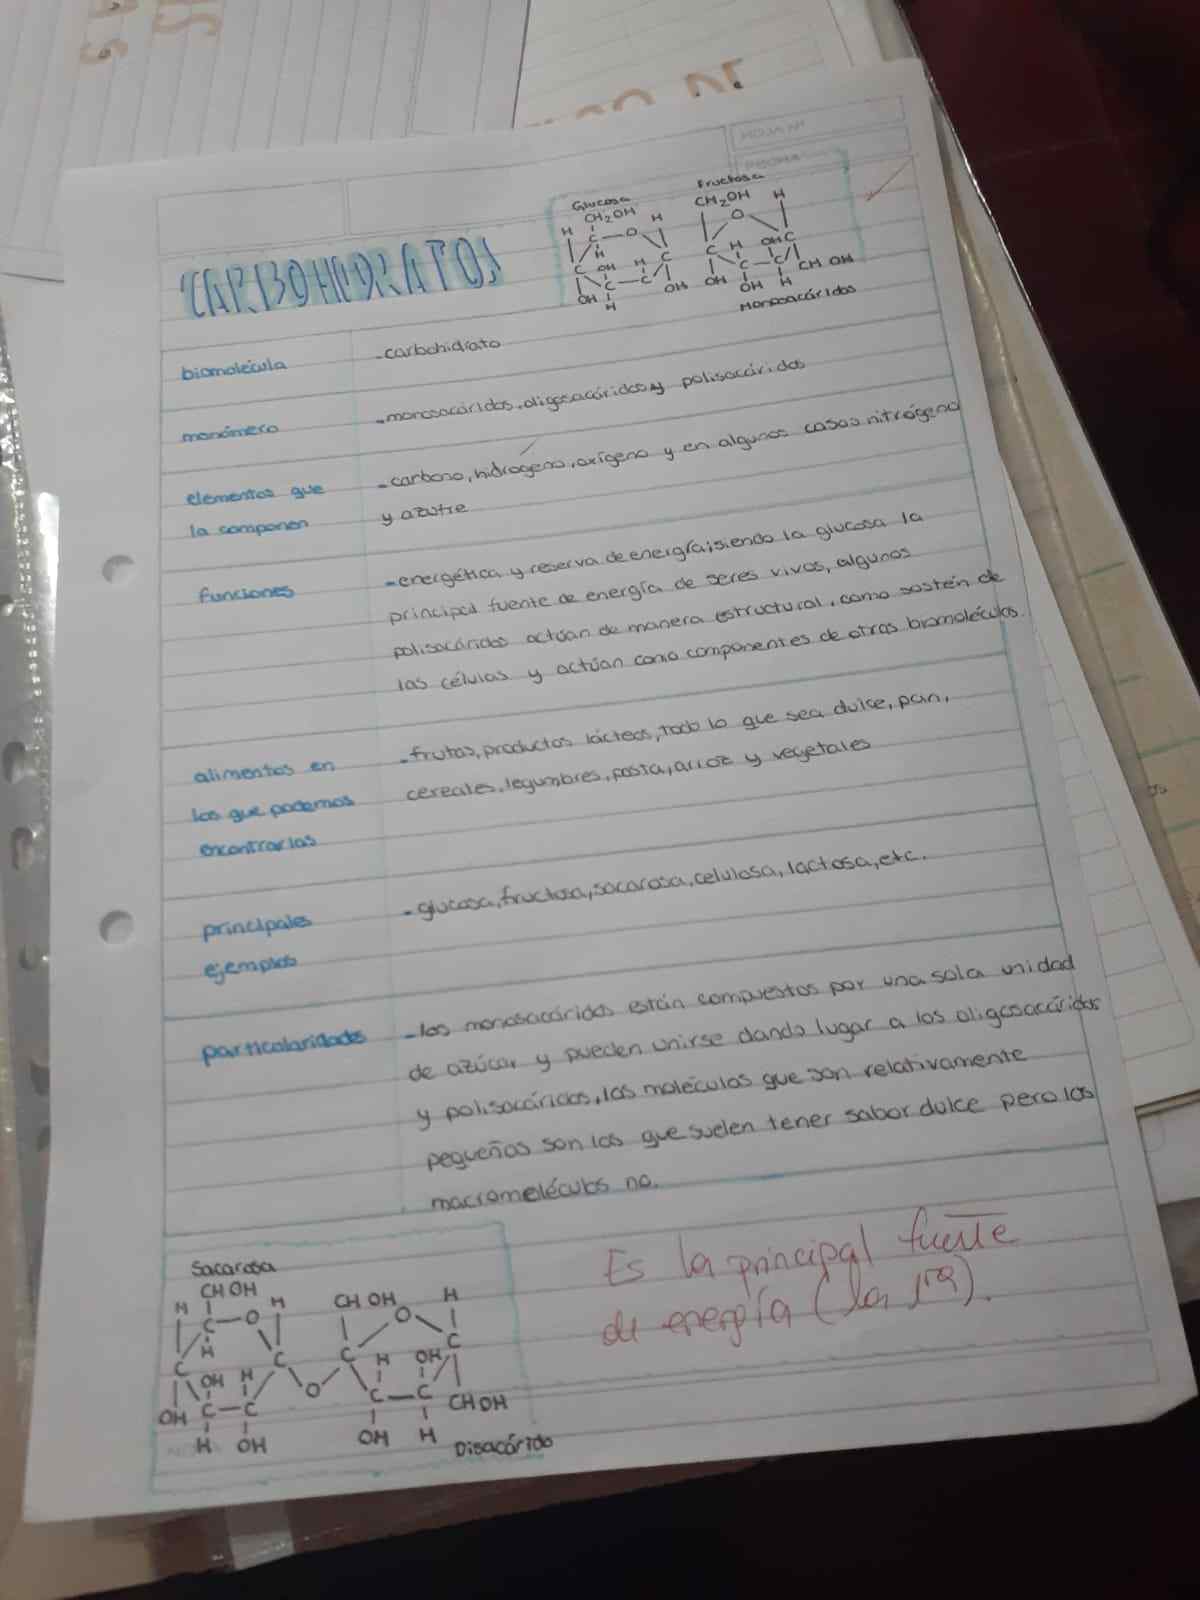 HOJA Nº
FECHA
CARBOHIDRATOS
Glucosa
CH₂OH
H
H
C
O
H
C
OH
H
C
C
C
OH
H
OH
Fructosa
CH₂OH
H
O
C
H
OH C
C
C
CH OH
OH
OH
H
Monosacáridos
biomolécula
- carbohidrato
monómero
- monosacáridos, oligosacáridos y polisacáridos
elementos que
la componen
- carbono, hidrógeno, oxígeno y en algunos casos nitrógeno
y azufre
funciones
- energética y reserva de energía; siendo la glucosa la
principal fuente de energía de seres vivos, algunos
polisacáridos actúan de manera estructural, como sostén de
las células y actúan como componentes de otras biomoléculas.
alimentos en
los que podemos
encontrarlas
- frutas, productos lácteos, todo lo que sea dulce, pan,
cereales, legumbres, pasta, arroz y vegetales
principales
ejemplos
- glucosa, fructosa, sacarosa, celulosa, lactosa, etc.
particularidades
- los monosacáridos están compuestos por una sola unidad
de azúcar y pueden unirse dando lugar a los oligosacáridos
y polisacáridos, las moléculas que son relativamente
pequeñas son las que suelen tener sabor dulce pero las
macromoléculas no.
Es la principal fuente
de energía (la 1ra).
Sacarosa
CH OH
H
H
C
O
H
C
C
OH
H
OH
C
C
H
OH
O
CH OH
H
O
C
C
H
OH
C
C
CH OH
OH
H
Disacárido